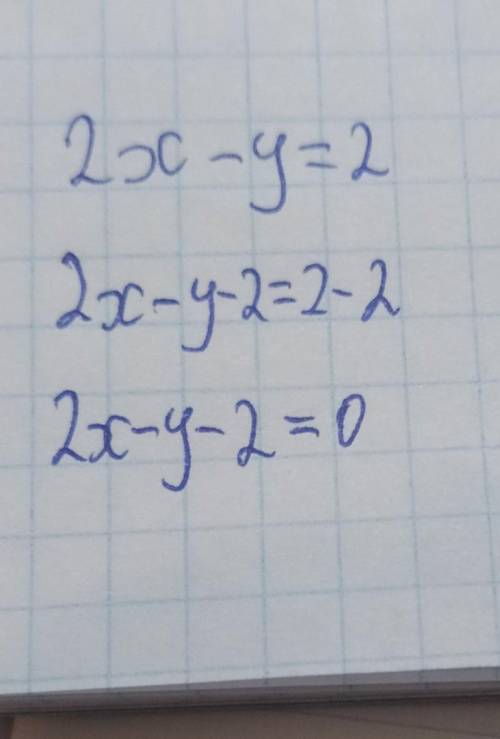 2x - y = 2
2x - y - 2 = 2 - 2
2x - y - 2 = 0